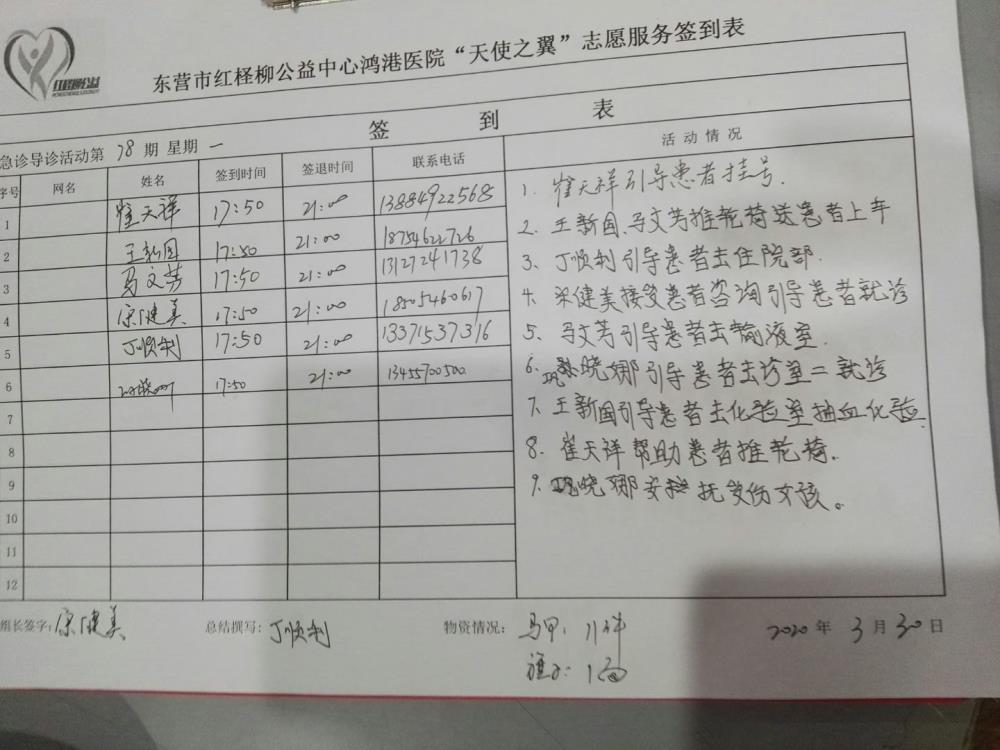 红柽柳公益
东营市红柽柳公益中心鸿港医院“天使之翼”志愿服务签到表
签 到 表
急诊导诊活动第 78 期 星期 一
活动情况
序号 网名 姓名 签到时间 签退时间 联系电话
1 崔天祥 17:50 21:00 13884922568
2 王新国 17:50 21:00 18754622726
3 马文芳 17:50 21:00 13127241738
4 宋健美 17:50 21:00 18505460617
5 丁顺利 17:50 21:00 13371537316
6 17:50 21:00 13455700500
7
8
9
10
11
12
1. 崔天祥引导患者挂号.
2. 王新国.马文芳推轮椅送患者上车
3、丁顺利引导患者去住院部.
4. 宋健美接受患者咨询引导患者就诊
5. 马文芳引导患者去输液室.
6. 晓娜引导患者去诊室二就诊
7. 王新国引导患者去化验室抽血化验.
8. 崔天祥帮助患者推轮椅.
9. 晓娜安抚受伤女孩。
组长签字: 宋健美
总结撰写: 丁顺利
物资情况: 马甲: 11件
旗子: 1面
2020 年 3 月 30 日